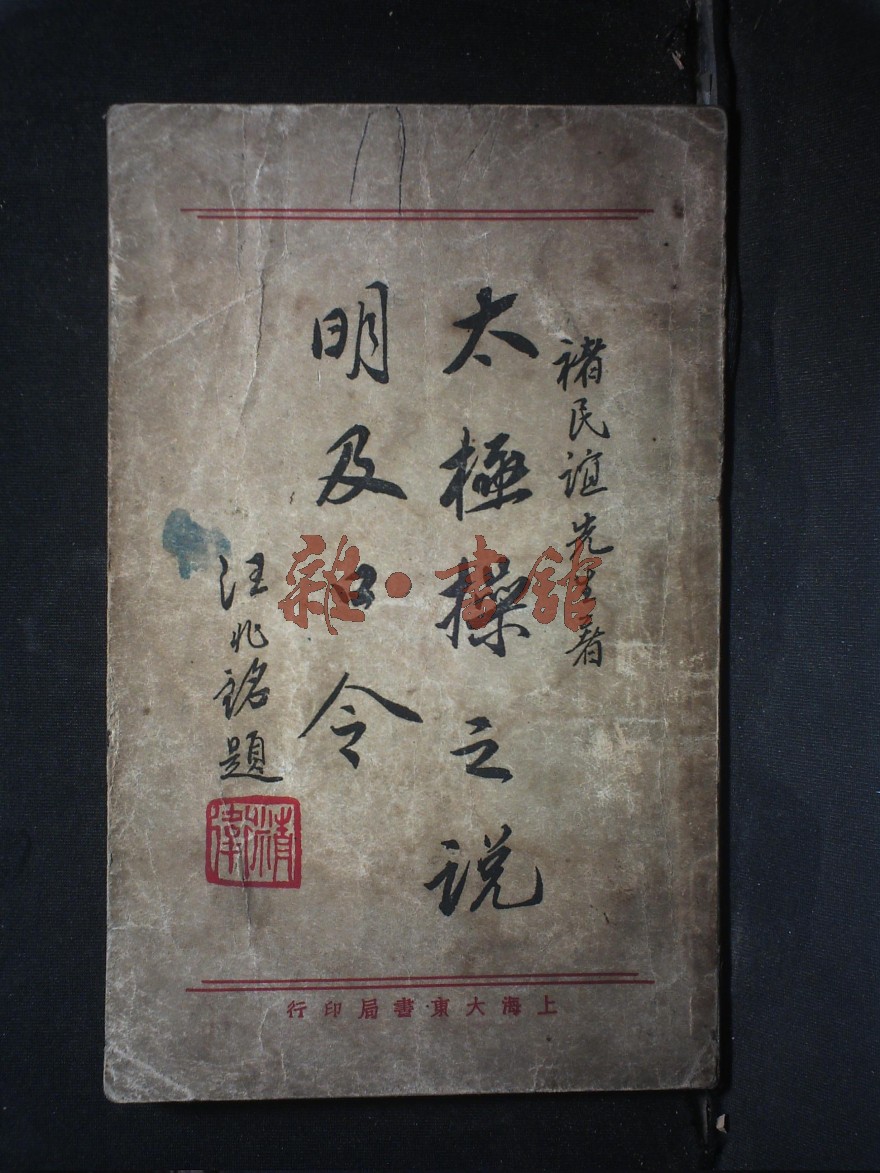 褚民谊先生著
太極操之说
明及口令
汪兆铭題
精衛
上海大東書局印行
雜·書館